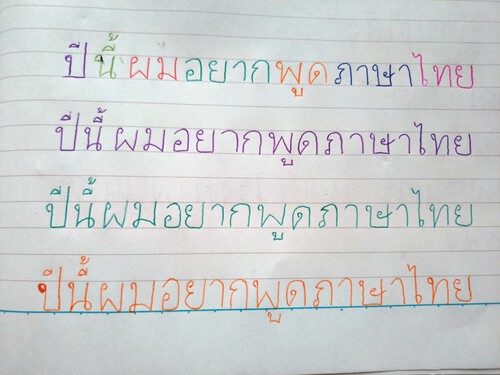 ปีนี้ผมอยากพูดภาษาไทย
ปีนี้ผมอยากพูดภาษาไทย
ปีนี้ผมอยากพูดภาษาไทย
ปีนี้ผมอยากพูดภาษาไทย